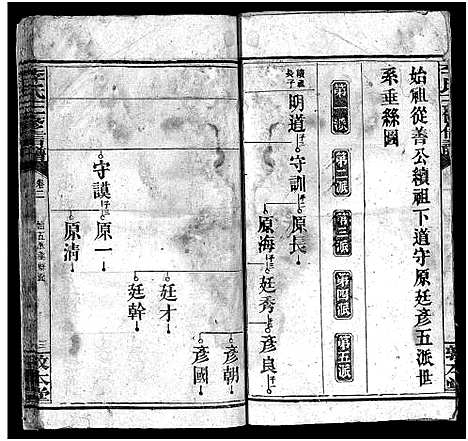 始祖從善公績祖下道守原廷彥五派世
系垂絲圖
第一派
第二派
第三派
第四派
第五派
績祖長子
明道
子二
守訓
原長
原海
子二
廷秀
彥良
子二
守謨
子二
原一
原清
廷才
廷幹
彥朝
彥國
卷二
三
敦本堂